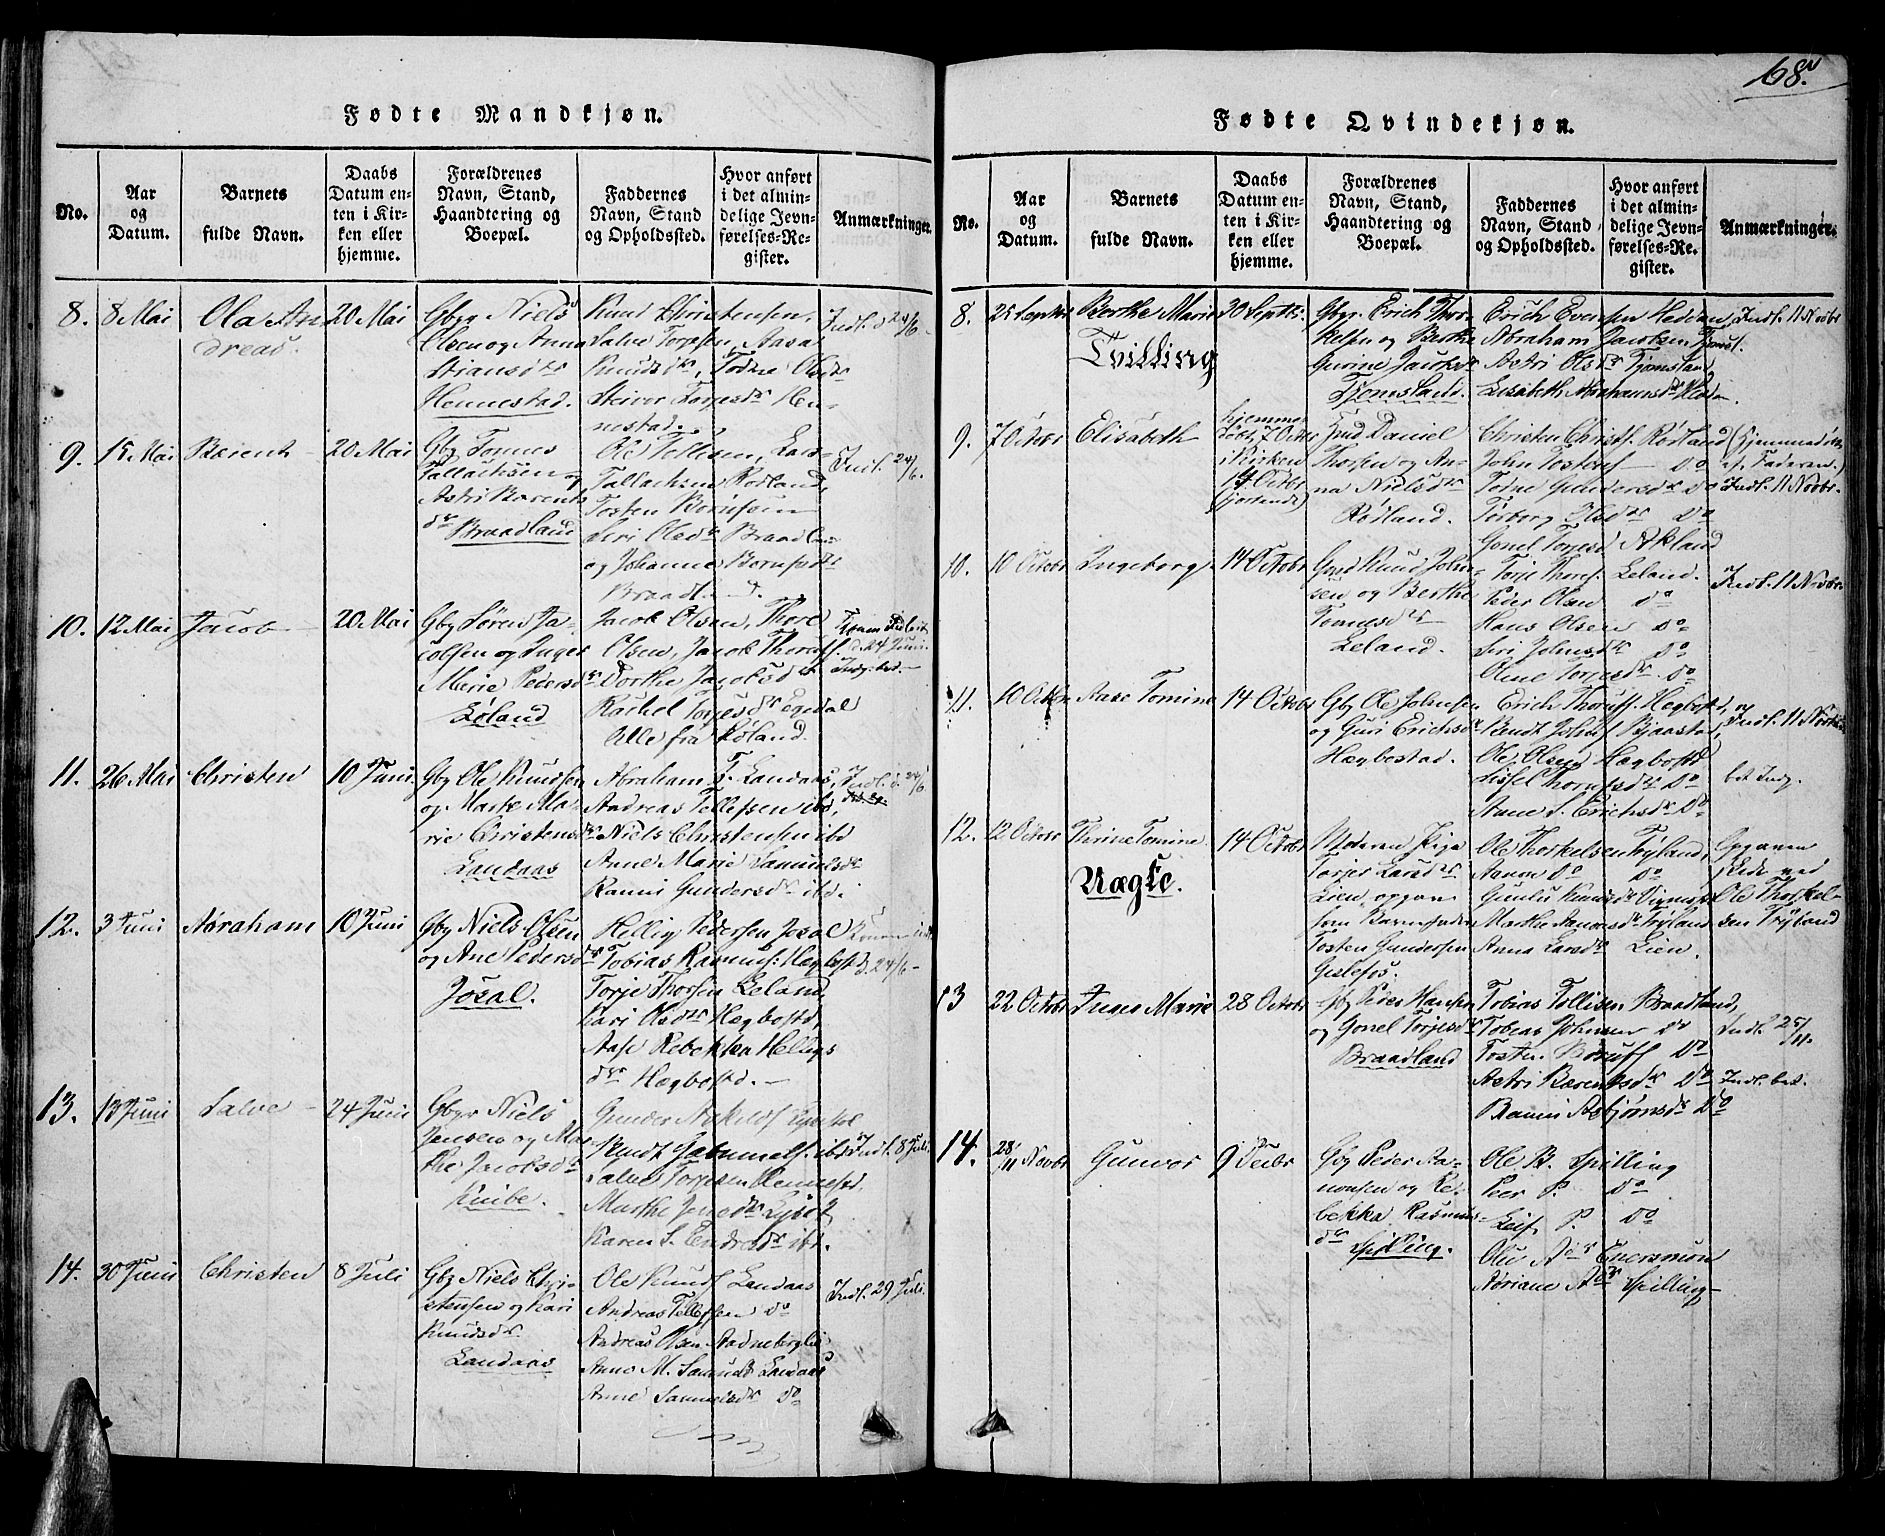 68.
Fødte Mandkjøn.
No.
Aar
og
Datum.
Barnets
fulde Navn.
Daabs
Datum en-
ten i Kir-
ken eller
hjemme.
Forældrenes
Navn, Stand,
Haandtering og
Boepæl.
Faddernes
Navn, Stand
og Opholdssted.
Hvor anført
i det almin-
delige Jevn-
førelses-Re-
gister.
Anmærkninger.
8.
8 Mai
Ole An
dreas.
20 Mai
Gbgr Niels
Olsen og Anna
Stiansdtr
Hennestad.
Knud Christensen,
Salve Torjesen, Aasa
Knudsdtr, Todne Olsdtr
Torjesdtr Hen-
nestad.
Indl. d 24/6
9.
15 Mai
Berent
20 Mai
Gbg Tomes
Tallachsen og
Astri Berents
dtr Braadland
Ole Tellisen, Lars
Tallachsen Rødland,
Tosten Børufsen
Siri Olsdtr Braadland
og Johanne Børufsdtr
Braadl.
Indl. 24/6.
10.
12 Mai
Jacob
20 Mai
Gbg Søren Ja-
cobsen og Inger
Marie Pedersdtr
Eøland
Jacob Olsen, Thore
Olsen, Jacob Thorufs.
Dorthe Jacobsdtr
Rachel Torjesdtr Egedal
Alle fra Røland.
d. 24 Juni.
11.
26 Mai
Christen
10 Juni
Gbg Ole Knudsen
og Marthe Ma-
rie Christensdtr
Landaas
Abraham T. Landaas,
Andreas Tellefsen ibd,
Niels Christensen ibd
Anne Marie Samuelsdtr
Rannei Gundersdtr ibd.
Indl. d. 24/6
12.
3 Juni
Abraham
10 Juni
Gbg Niels Olsen
og Ane Pedersdtr
Josal.
Hellig Pedersen Josal
Tobias Rasmus: Hægbostd
Torje Thorsen Leland,
Kari Olsdtr Hægbostd,
Aase Rebekka Helligs
dtr Hægbostd.
Konen indl.
d. 24/6
13.
13 Juni
Salve
24 Juni
Gbgr Niels
Jensen og Mar
the Jacobsdtr
Knibe.
Gunder
Knudt Gammels. ibd
Salve Torjesen Hennestd
Marthe Jensdtr
Karen S. Endresdtr ibd.
Indl. 8 Juli.
14.
30 Juni
Christen
8 Juli
Gbg Niels Chri-
stensen og Kari
Knudsdtr.
Landaas
Ole Knuds Landaas
Andreas Tellefsen do
Andreas Olsen Aadneberglie
Anne M. Samuelsdtr Landaas
Anne Samuelsdtr do
Indl. 29 Juli.
Fødte Qvindekjøn.
No.
Aar
og
Datum.
Barnets
fulde Navn.
Daabs
Datum en-
ten i Kir-
ken eller
hjemme.
Forældrenes
Navn, Stand,
Haandtering og
Boepæl.
Faddernes
Navn, Stand
og Opholdssted.
Hvor anført
i det almin-
delige Jevn-
førelses-Re-
gister.
Anmærkninger.
8.
25 Septbr
Berthe Marie
Tvilling
30 Septbr.
Gbgr. Erich Thor-
kelsen og Berthe
Gurine Jacobsdtr
Tjomsland.
Erich Evensen Heddan
Abraham Jacobsen Tjomsl.
Astri Olsdtr Tjomsland
Elisabeth Abrahamsdtr Hedda
Indl. 11 Novbr
9.
7 Octobr
Elisabeth
hjemme
døbt 7 Octbr
i Kirken
14 Octbr
Daniel
Thorsen og An-
na Nielsdtr
Rødland.
Christen Christs. Rødland
John Tostens. do
Todne Gundersdtr do
Torborg Olsdtr do
Gonel Torjesd Akland
(Hjemmedøbt
af Faderen.)
Indl. 11 Novbr.
10.
10 Octobr
Ingeborg
14 Octobr
Knud John-
sen og Berthe
Tomesdtr
Leland.
Torje Thors. Leland.
Peder Olsen do
Hans Olsen do
Siri Johnsdtr do
Oline Torjesdtr. do
Indl. 11 Novbr.
11.
10 Octbr
Aase Tomine
14 Octobr
Gbg Ole Johnsen
og Guri Erichsdtr
Hægbostad.
Erich Thorufs. Hægbostd,
Bendt Johns Bjaastad,
Ole Olsen Hægbostd
Sissel Thorufsdtr do
Anne S. Erichsdtr do
Indl. 11 Novbr
12.
12 Octobr
Thrine Tomine
Uægte.
14 Octobr
Moderen Pige
Torjer Larsdtr
Lien, opgav
som Barnefader
Tosten Gundersen
Gislefos.
Ole Thorkelsen Tryland,
Aanon do do
Gunlu Knudsdtr
Marthe Aanonsdtr Tryland
Anna Larsdtr Lien.
Opgaven
skede ved
Ole Thorkel-
sen Tryland
13
22 Octobr
Inger Marie
28 Octobr
Gbg Peder Hansen
og Gonel Torjesdtr
Braadland
Tobias Tellisen Braadland,
Tobias Johnsen do
Tosten Børufs do
Astri Berentsdtr do
Rannei Asbjørnsdtr do
Indl. 25/11.
Indl. bet.
14.
28/11 Novbr
Gunvor
9 Decbr
Gbg Peder Aa-
nonsen og Re-
bekka Rasmus-
dtr
Spilling.
Ole B. Spilling
Peer P. do
Leif P. do
Spilling